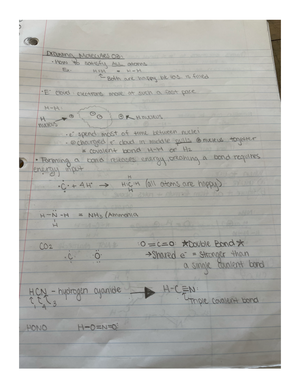 Drawing Molecules Cᴮ
• How to satisfy all atoms
Ex. H+H → H-H
both are happy bc 2e- is filled
• E⁻ cloud electrons move in such a fast pace
H-H
H
nucleus
nucleus
• e⁻ spend most of time between nuclei
• e⁻ charged e⁻ cloud in middle nuclei together
* covalent bond H-H or H₂
• Forming a bond releases energy, breaking a bond requires
energy input
•C• + 4H• → H-C-H (all atoms are happy)
H-N-H = NH₃ (Ammonia
H
CO₂ O=C=O *Double Bond*
C O → Shared e⁻ = stronger than
a single covalent bond
HCN - hydrogen cyanide → H-C≡N:
Triple covalent bond
HONO H-O=N=O